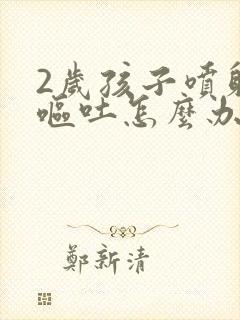 2歲孩子噴射
嘔吐怎麼办
鄭新清